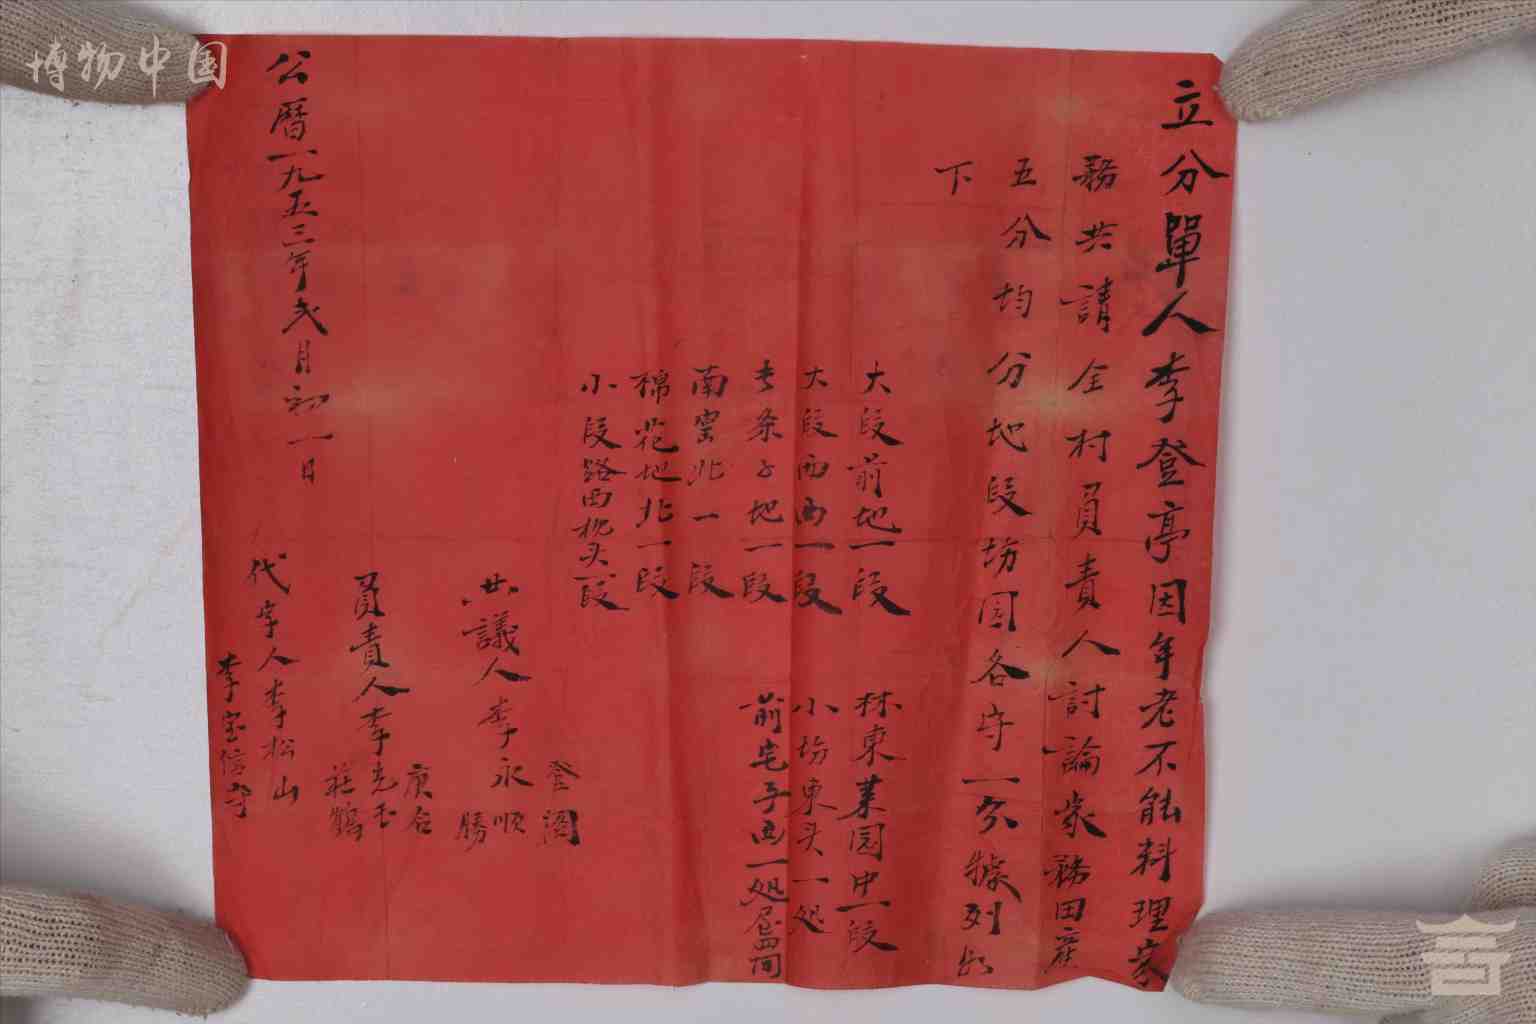 立分單人李登亭因年老不能料理家
務共請全村員責人討論家務田產
五分均分地段坊园各守一分據列於
下
大段前地一段 林東菜园中一段
大段西西一段 小坊東头一处
长条子地一段 前宅子西一处屋四间
南窑北一段
棉花地北一段
小段路西枕头一段
登閣
共議人李永順
勝
庚台
員責人李克玉
莊鶴
代字人李松山
李宝信
公曆一九五三年弍月初一日
博物中国